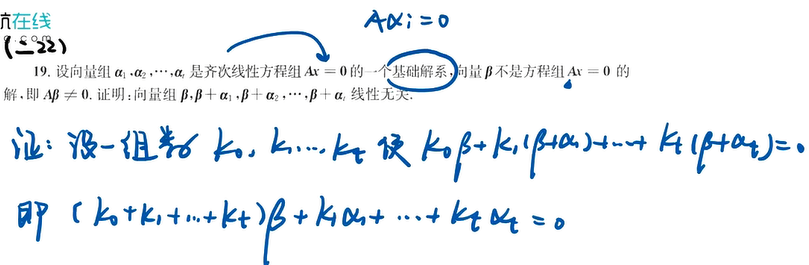 Aαi=0
在线
(二22)
19. 设向量组 α₁,α₂,⋯,αₜ 是齐次线性方程组 Ax=0 的一个基础解系,向量 β 不是方程组 Ax=0 的
解,即 Aβ≠0. 证明:向量组 β,β+α₁,β+α₂,⋯,β+αₜ 线性无关.
证: 设一组数 k₀, k₁⋯, kₜ 使 k₀β+k₁(β+α₁)+⋯+kₜ(β+αₜ)=0
即 (k₀+k₁+⋯+kₜ)β+k₁α₁+⋯+kₜαₜ=0